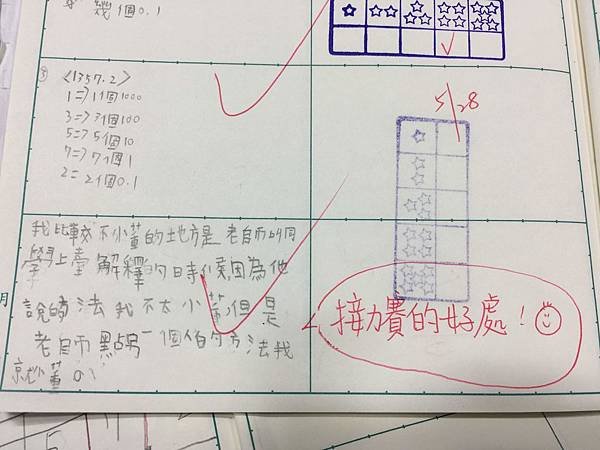 幾個0.1
③ <1357.2>
1=>1個1000
3=>3個100
5=>5個10
7=>7個1
2=2個0.1
5/28
我比較不懂的地方是老師的同
學上臺解釋的時候因為他
說的方法我不太懂但是
老師點另一個的方法我
就懂
接力賽的好處!